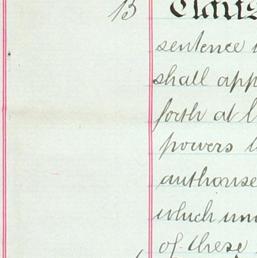 13 Claus
sentence
shall app
forth at l
powers
authorise
which
of these